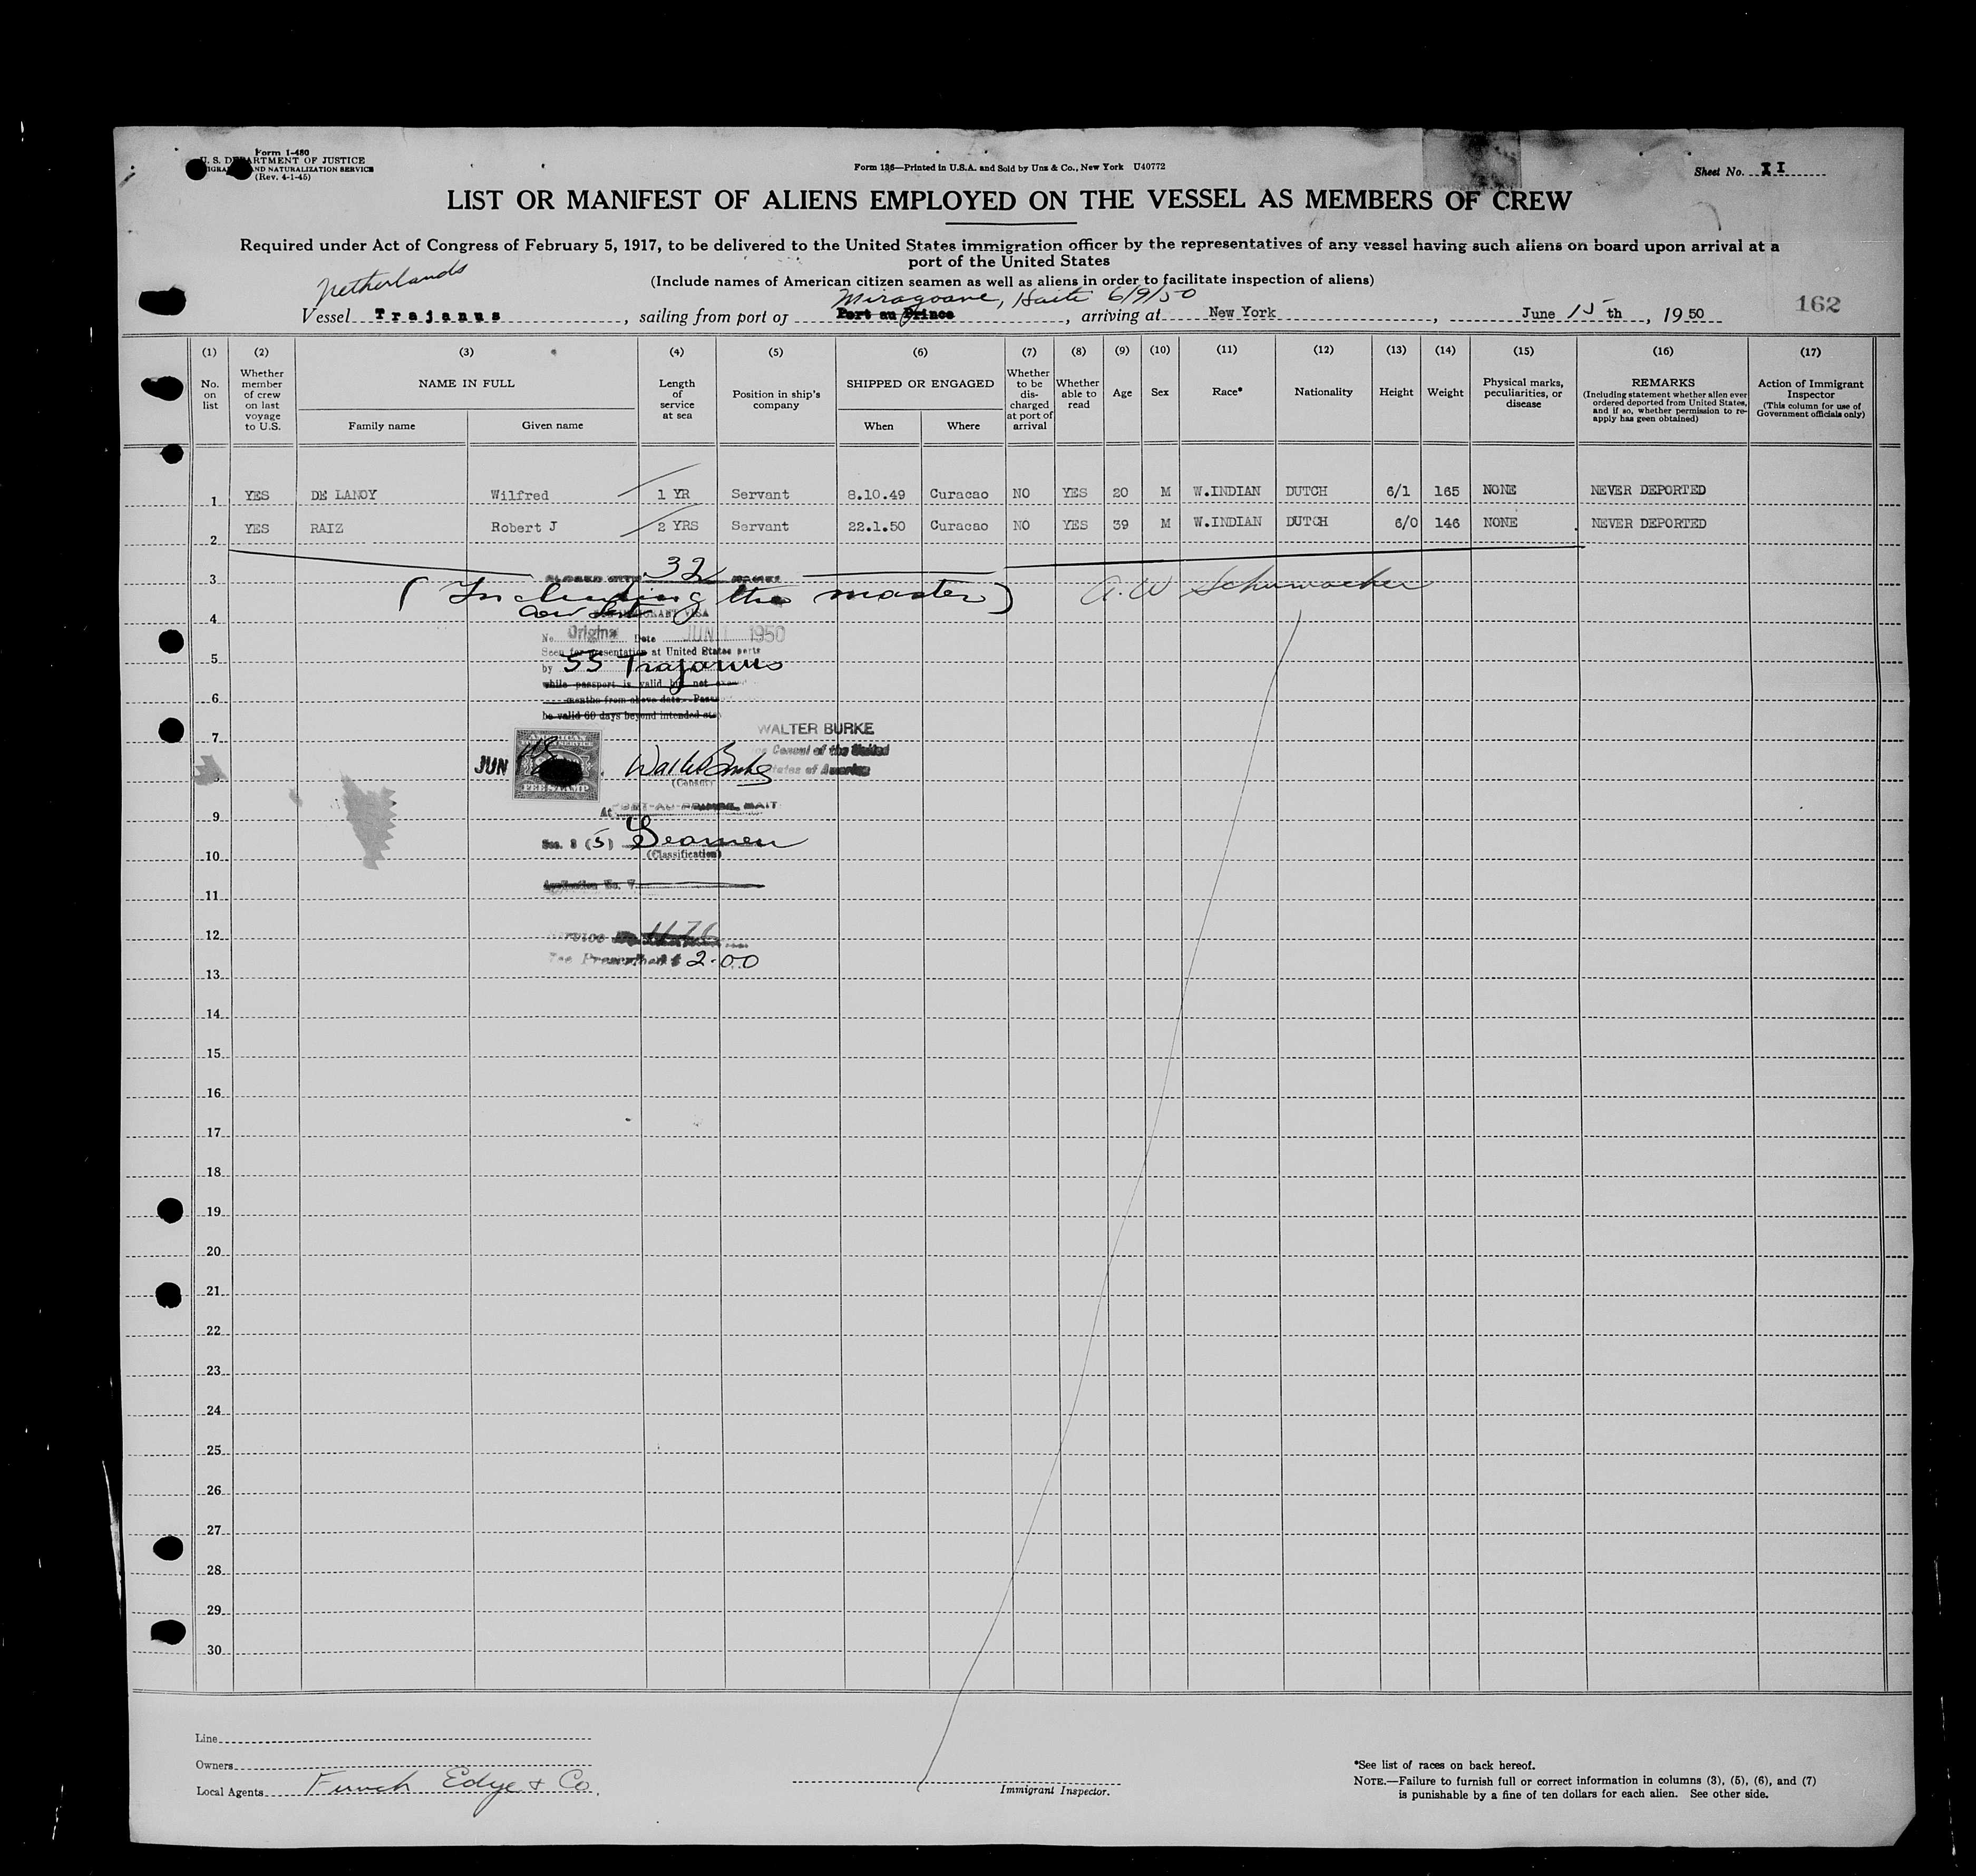 Form I-480
U. S. DEPARTMENT OF JUSTICE
IMMIGRATION AND NATURALIZATION SERVICE
(Rev. 4-1-45)
Form 136—Printed in U.S.A. and Sold by Unz & Co., New York U40772
Sheet No. II
LIST OR MANIFEST OF ALIENS EMPLOYED ON THE VESSEL AS MEMBERS OF CREW
Required under Act of Congress of February 5, 1917, to be delivered to the United States immigration officer by the representatives of any vessel having such aliens on board upon arrival at a
port of the United States
(Include names of American citizen seamen as well as aliens in order to facilitate inspection of aliens)
Netherlands
Miragoane, Haiti 6/9/50
Vessel Trajanus, sailing from port of Port au Prince, arriving at New York, June 15 th, 19 50
162
(1) (2) (3) (4) (5) (6) (7) (8) (9) (10) (11) (12) (13) (14) (15) (16) (17)
No. on list
Whether member of crew on last voyage to U.S.
NAME IN FULL
Family name
Given name
Length of service at sea
Position in ship's company
SHIPPED OR ENGAGED
When
Where
Whether to be discharged at port of arrival
Whether able to read
Age
Sex
Race*
Nationality
Height
Weight
Physical marks, peculiarities, or disease
REMARKS
(Including statement whether alien ever ordered deported from United States, and if so, whether permission to re-apply has geen obtained)
Action of Immigrant Inspector
(This column for use of Government officials only)
1 YES DE LANOY Wilfred 1 YR Servant 8.10.49 Curacao NO YES 20 M W.INDIAN DUTCH 6/1 165 NONE NEVER DEPORTED
2 YES RAIZ Robert J 2 YRS Servant 22.1.50 Curacao NO YES 39 M W.INDIAN DUTCH 6/0 146 NONE NEVER DEPORTED
32
3
(Including the master) A. W Schumacher
4
No. Original Date JUN 1950
Seen for presentation at United States ports
5
by SS Trajanus
while passport is valid but not
6
months from above date.
be valid 60 days beyond intended
7
WALTER BURKE
Consul of the United
States of America
JUN
AMERICAN
SERVICE
FEE STAMP
Walter Burke
(Consul)
8
At PORT-AU-PRINCE, HAITI
9
Sec. 3 (5) Seamen
(Classification)
10
Application No. V
11
12
Service No.
Fee Prescribed $ 2.00
13
14
15
16
17
18
19
20
21
22
23
24
25
26
27
28
29
30
Line
Owners
Local Agents Funch Edye & Co.
Immigrant Inspector.
*See list of races on back hereof.
NOTE.—Failure to furnish full or correct information in columns (3), (5), (6), and (7)
is punishable by a fine of ten dollars for each alien. See other side.